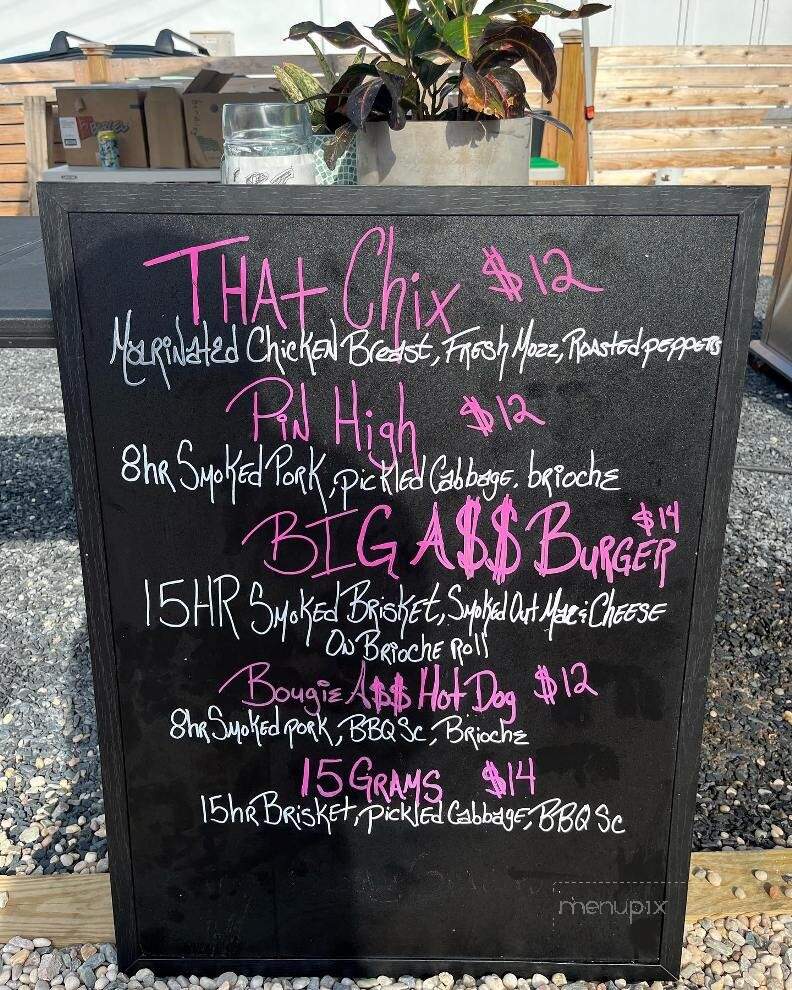 THAt Chix $12
Marinated Chicken Breast, Fresh Mozz, Roasted peppers
Pin High $12
8hr Smoked Pork, pickled Cabbage. brioche
BIG A$$ Burger $14
15HR Smoked Brisket, Smoked Out Mac & Cheese
On Brioche Roll
Bougie A$$ Hot Dog $12
8hr Smoked pork, BBQ Sc, Brioche
15 Grams $14
15hr Brisket, pickled Cabbage, BBQ Sc
menupix